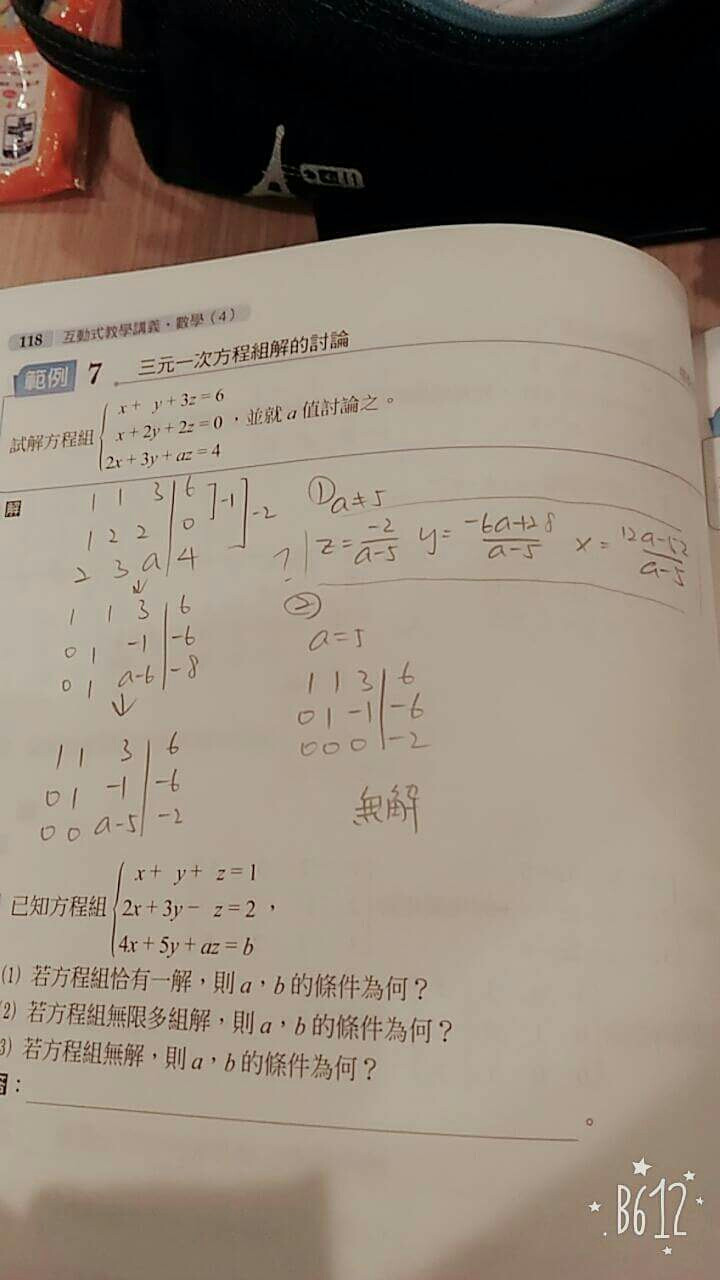 118 互動式教學講義·數學(4)
範例 7 三元一次方程組解的討論
x+ y+3z=6
試解方程組 x+2y+2z=0 ,並就 a 值討論之。
2x+3y+az=4
解
1 1 3 | 6 ]-1 ]-2
1 2 2 | 0
2 3 a | 4
↓
1 1 3 | 6
0 1 -1 | -6
0 1 a-6 | -8
↓
1 1 3 | 6
0 1 -1 | -6
0 0 a-5 | -2
① a≠5
? z=-2/a-5 y=-6a+28/a-5 x=12a-52/a-5
②
a=5
1 1 3 | 6
0 1 -1 | -6
0 0 0 | -2
無解
x+ y+ z=1
已知方程組 2x+3y- z=2 ,
4x+5y+az=b
(1) 若方程組恰有一解,則 a,b 的條件為何?
(2) 若方程組無限多組解,則 a,b 的條件為何?
(3) 若方程組無解,則 a,b 的條件為何?
答: 。
B612